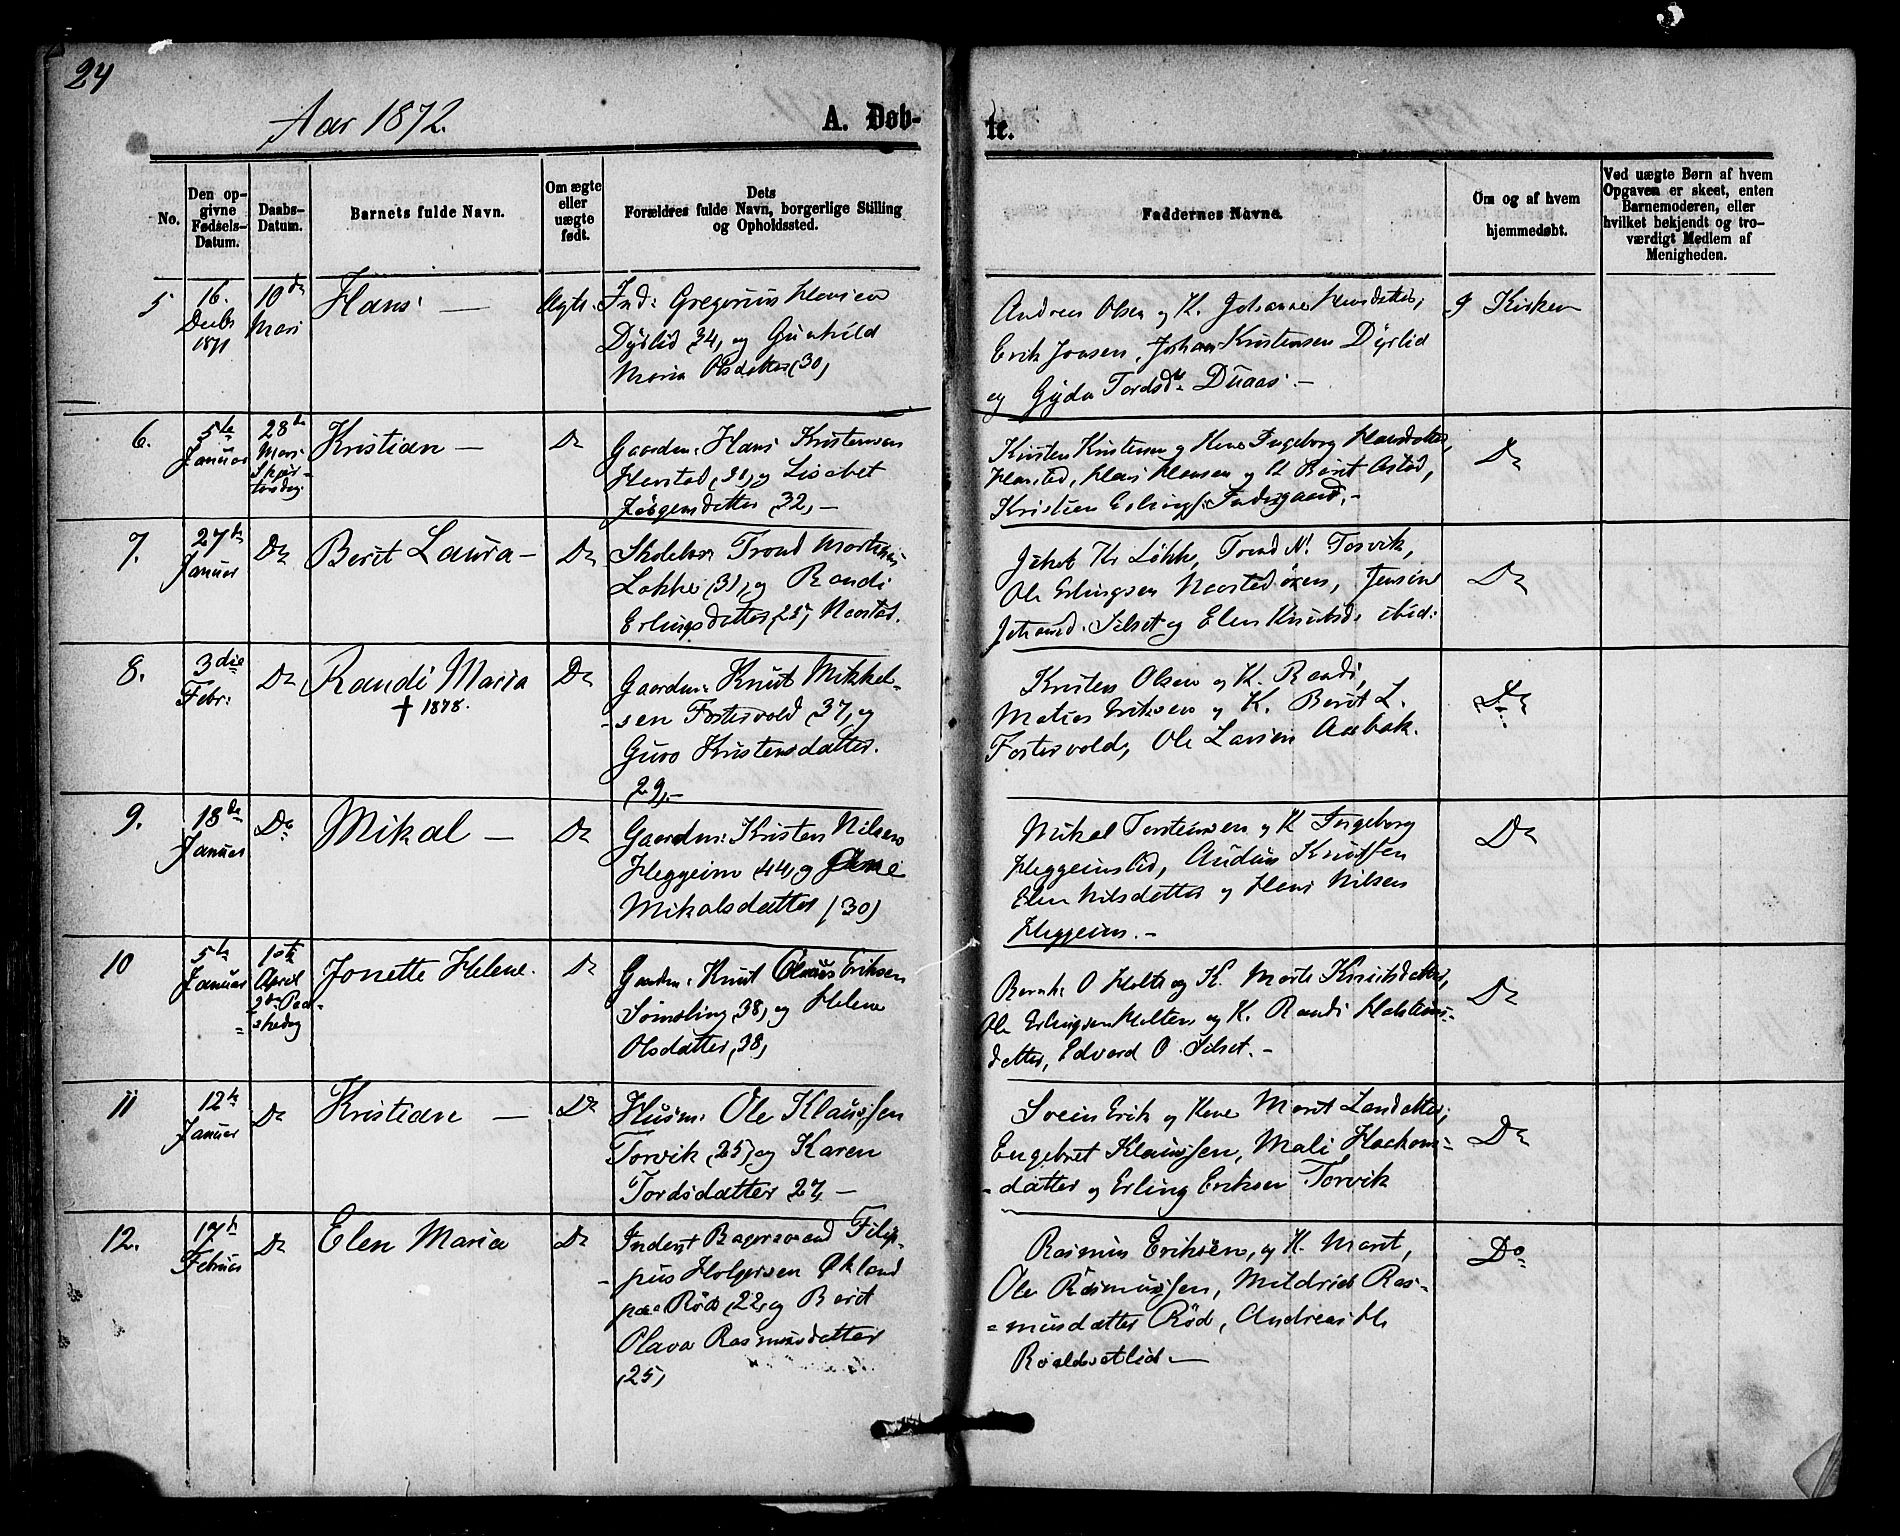 24
Aar 1872.
A. Døb-
te.
No.
Den op-
givne
Fødsels-
Datum.
Daabs-
Datum.
Barnets fulde Navn.
Om ægte
eller
uægte
født.
Dets
Forældres fulde Navn, borgerlige Stilling
og Opholdssted.
Faddernes Navne.
Om og af hvem
hjemmedøbt.
Ved uægte Børn af hvem
Opgaven er skeet, enten
Barnemoderen, eller
hvilket bekjendt og tro-
værdigt Medlem af
Menigheden.
5
16.
Decbr
1871
10de
Mars
Hans —
Ægte
Ind: Gregorius Hansen
Dyrlid (34) og Gunhild
Maria Olsdatter (30)
Andreas Olsen og K. Johanne Hansdatter,
Erik Jonsen, Johan Kristensen Dyrlid
og Gyda Tordsdtr Duaas —
I Kirken
6.
5te
Januar
28de
Mars
Skjær-
torsdag.
Kristian —
Do
Gaardm: Hans Kristensen
Harstad, (31) og Lisabet
Jørgensdatter 32, —
Kristen Kristensen og Kone Ingeborg Hansdatter,
Harstad, Hans Hansen og K Berit Astad,
Kristian Erlings: Indergaard. —
Do
7.
27de
Januar
Do
Berit Laura —
Do
Skolelær Trond
Løkke (31) og Randi
Erlingsdatter (25) Naastad.
Løkke, Trond N. Torvik,
Ole Erlingsen Naastadøren, Jensine
Silset og Elen Knutsd. ibid:
Do
8.
3die
Febr:
Do
Randi Maria
† 1878.
Do
Gaardm: Knut Mikkel-
-sen Fostervold (37) og
Guro Kristensdatter.
29, —
Kristen Olsen og K. Randi,
Matias Eriksen og K. Berit L.
Fostervold, Ole Larsen Aabak.
Do
9.
18de
Januar
Do
Mikal —
Do
Gaardm: Kristen Nilsen
Heggeim (44) og Ane
Mikalsdatter (30)
Mikal Torstensen og K Ingeborg
Heggeimslid, Audun Knutsen
Elen Nilsdatter og Hans Nilsen
Heggeim. —
Do
10
5te
Januar
1ste
April
2den Paa-
skedag
Jonette Helene.
Do
Gaardm: Knut Olaus Eriksen
Sømsling (38) og Helene
Olsdatter (38)
Bernh: O Holte og K. Marte Knutsdatter,
Ole Erlingsen Melten og K. Randi Halsteins-
datter, Edvard O. Silset. —
Do
11
12te
Januar
Do
Kristian —
Do
Husm: Ole Klaussen
Torvik (25) og Karen
Tordsdatter 27 —
Svein Erik og Kone Marit
Engebret Klaussen, Mali Haakons-
-datter og Erling Eriksen Torvik
Do
12.
17de
Februar
Do
Elen Maria
Do
Inderst Bagersvend Filip-
-pus Holgersen Økland
paa Rød (22) og Berit
Olava Rasmusdatter
(25)
Rasmus Eriksen, og K. Marit,
Ole Rasmussen, Mildrid Ras-
-musdatter Rød, Andreas H.
Roaldsetlid —
Do